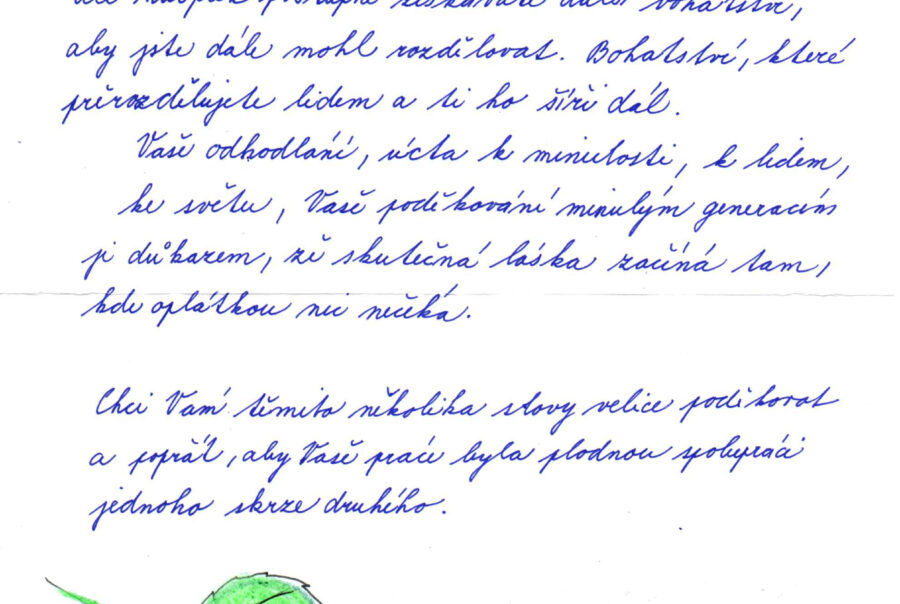 získáváte další bohatství,
aby jste dále mohl rozdělovat. Bohatství, které
přerozdělujete lidem a ti ho šíří dál.
Vaše odhodlání, úcta k minulosti, k lidem,
ke světu, Vaše poděkování minulým generacím
je důkazem, že skutečná láska začíná tam,
kde oplátkou nic nečeká.
Chci Vám těmito několika slovy velice poděkovat
a popřát, aby Vaše práce byla plodnou spolupráci
jednoho skrze druhého.